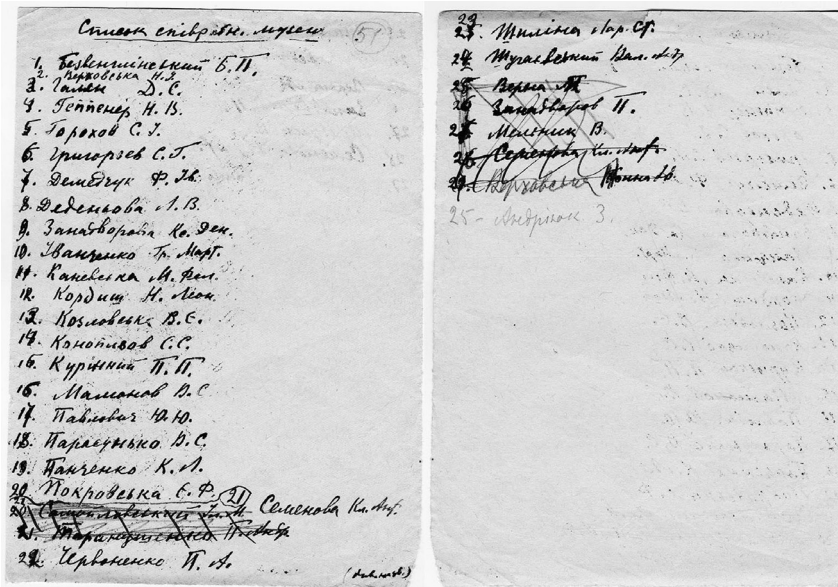 Список співробітн. музею 51
1. Безвенглінський Б. П.
2. Верховська Н. Л.
3. Гамян Д. С.
4. Геппенер Н. В.
5. Горохов С. І.
6. Григорьев С. Г.
7. Демедчук Ф. Ів.
8. Деденьова Л. В.
9. Занадворова Ка. Ден.
10. Іванченко Гр. Март.
11. Каневська М. Фел.
12. Кордиш Н. Леон.
13. Козловська В. Є.
14. Коноплзов С. С.
15. Курінний П. П.
16. Мамонов В. С
17. Павлович Ю. Ю.
18. Парасунько В. С.
19. Панченко К. Л.
20 Покровська Є. Ф.
21 Семенова Кл. Анф.
22. Червоненко П. А.
23. Шиліна Лар. Ст.
24. Щугаєвський Вал. Ан.
25 Верна М
26 Занадворов П.
27 Мельник В.
Семенова Кл. Анф.
Верховськ
25 - Андріюк З.